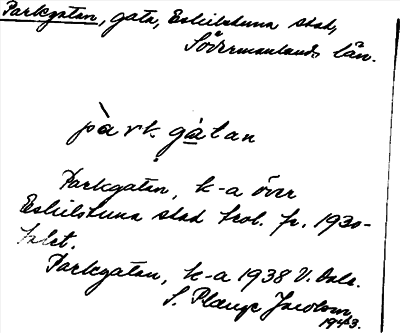 Parkgatan, gata, Eskilstuna stad,
Södermanlands län.
pàrkgàtan
Parkgatan, k-a över
Eskilstuna stad kol. fr. 1930-
talet.
Parkgatan, k-a 1938 V. Dale.
S. Plaenge Jacobson
1943.